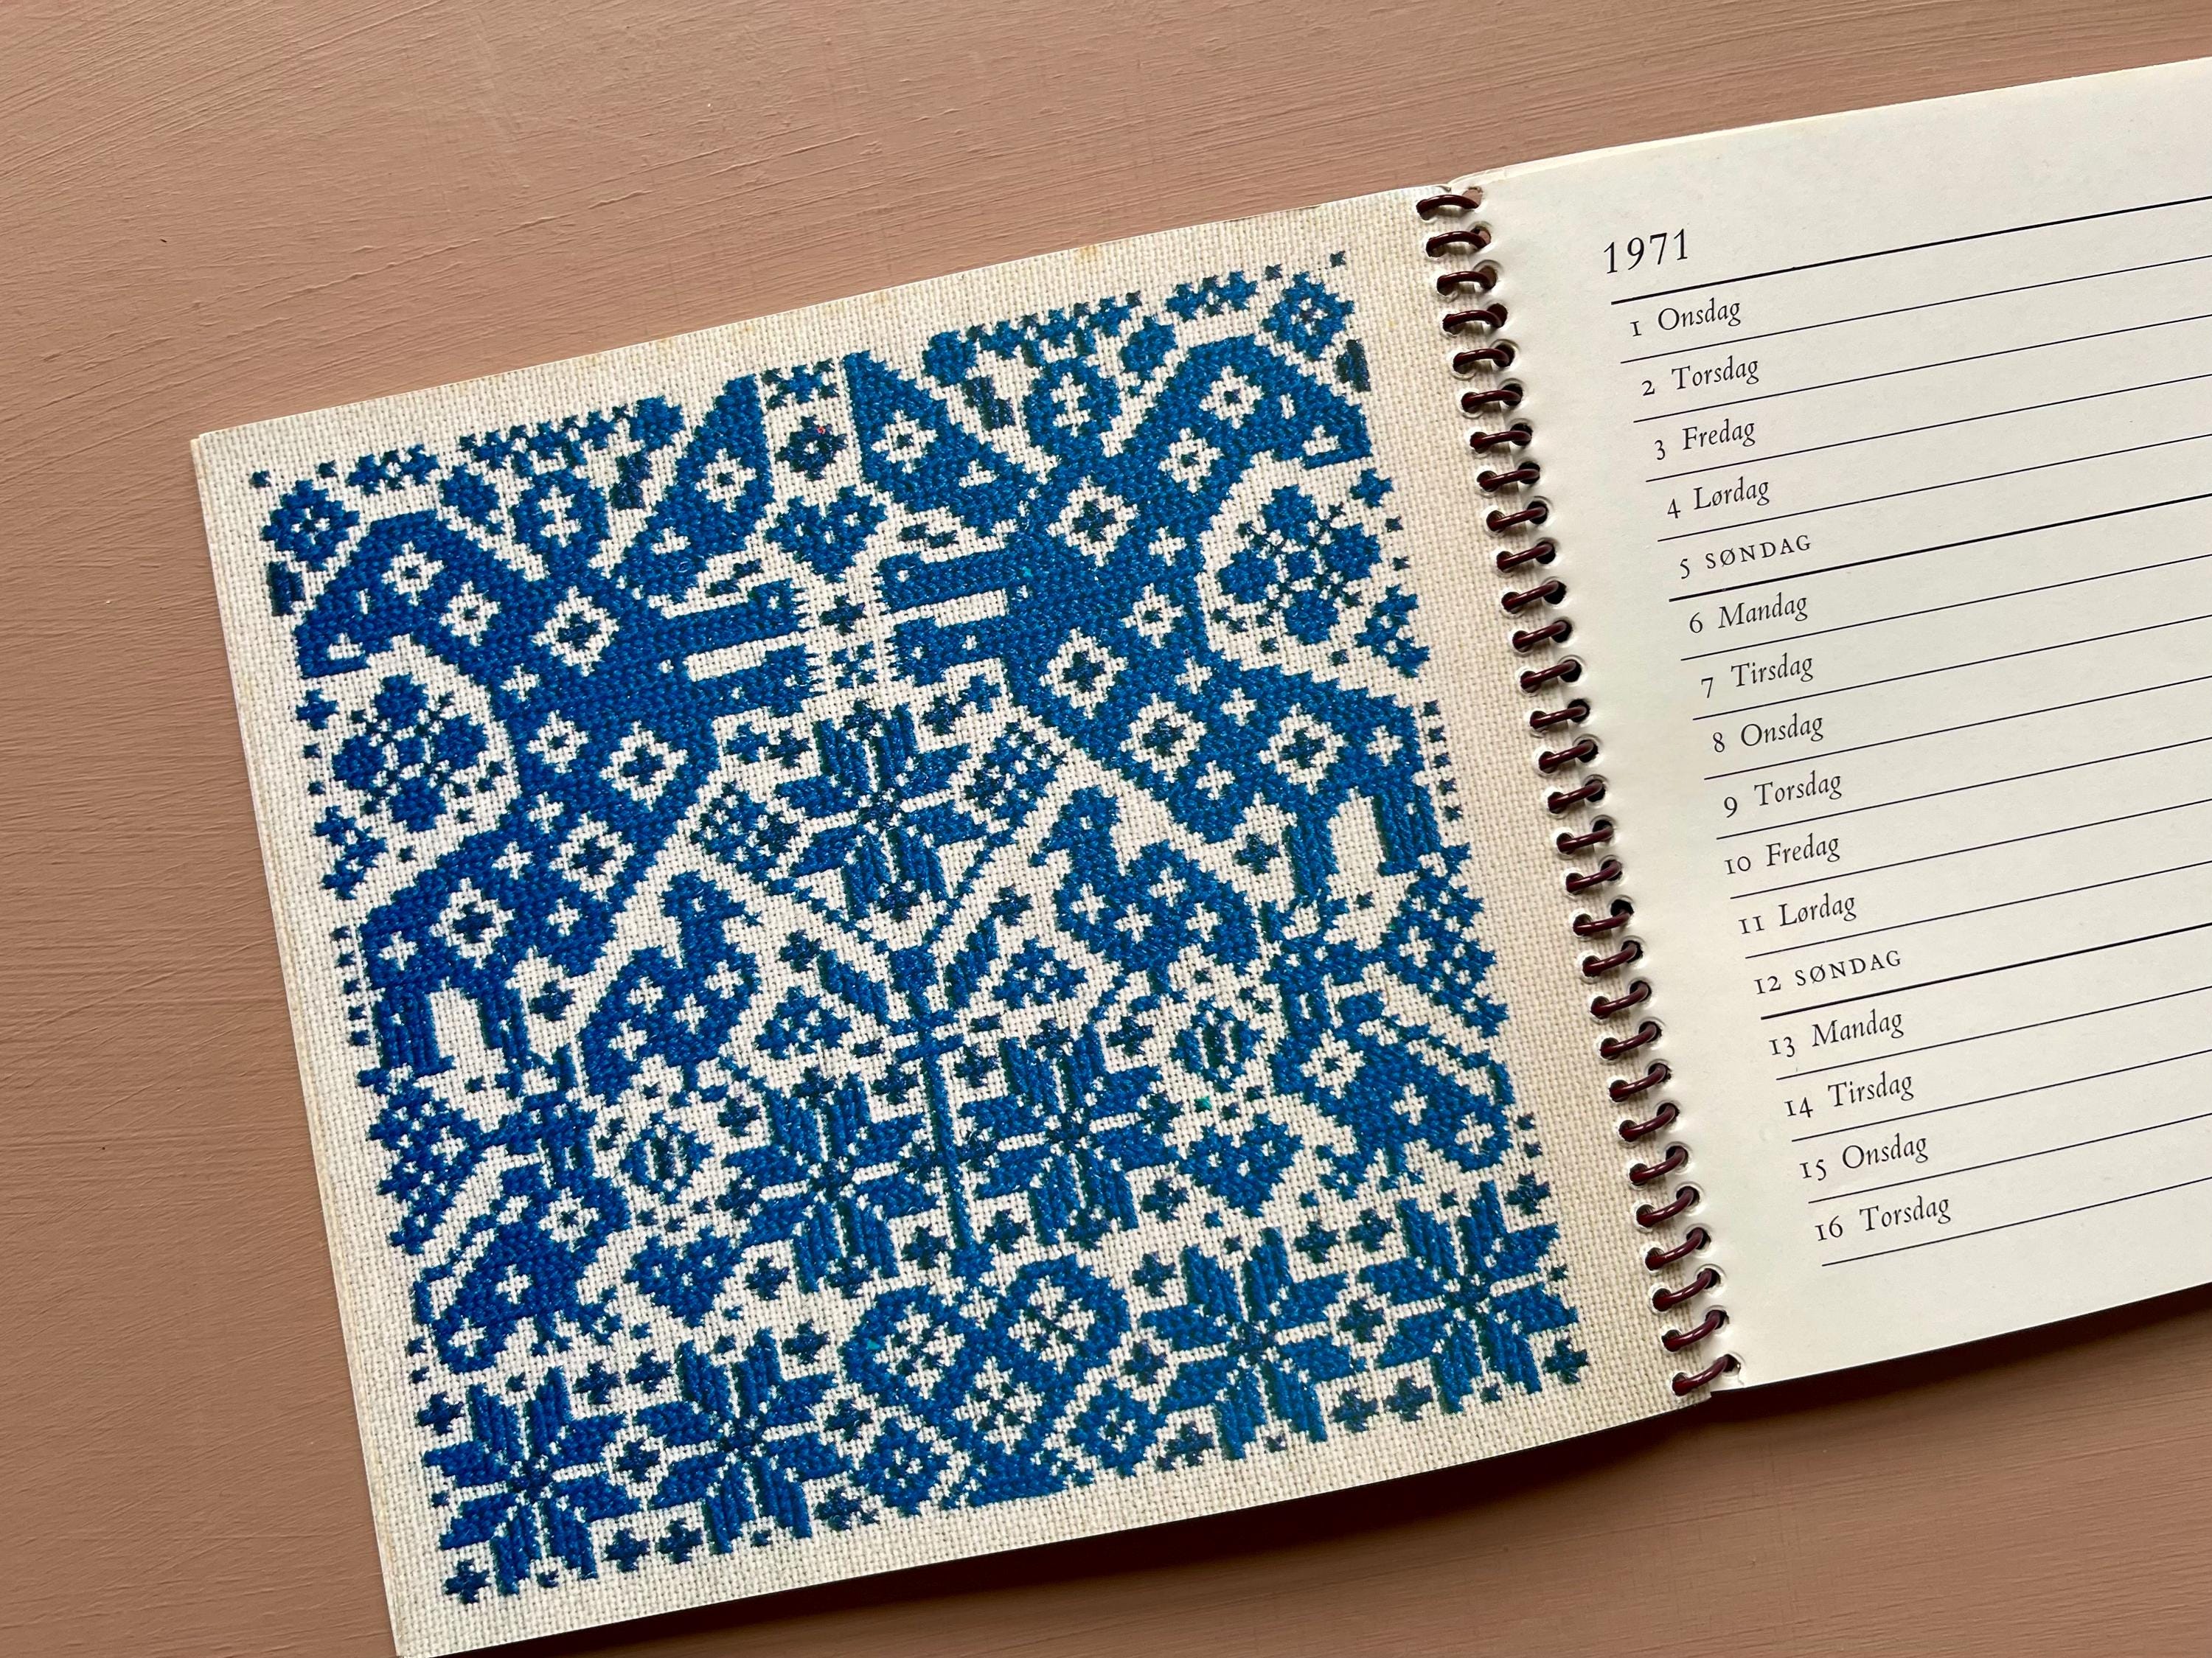 1971
1 Onsdag
2 Torsdag
3 Fredag
4 Lørdag
5 SØNDAG
6 Mandag
7 Tirsdag
8 Onsdag
9 Torsdag
10 Fredag
11 Lørdag
12 SØNDAG
13 Mandag
14 Tirsdag
15 Onsdag
16 Torsdag